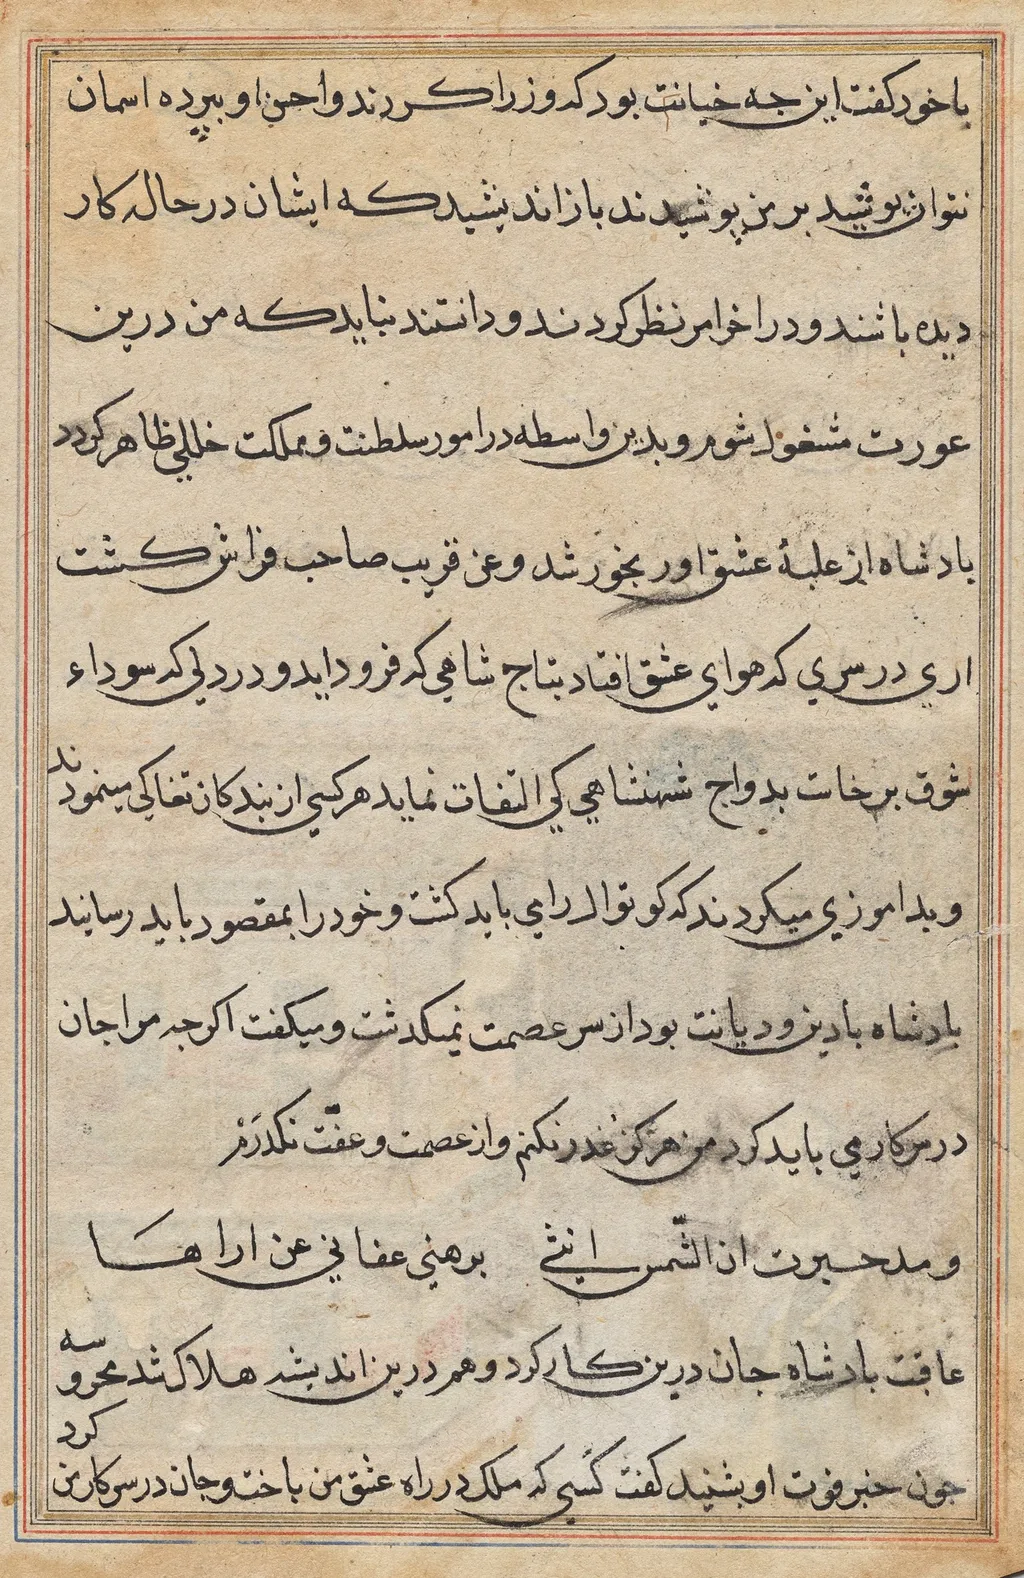 با خود کفت این جه خیانت بود که وزرا کردند و احسن او ببرده اسمان
نتوان پوشید بر من پوشیدند باز اندیشید که ایشان در حال کار
دیده باشند و در اخر امر نظر کردند و دانستند نباید که من درین
عورت مشغول شوم و بدین واسطه در امور سلطنت و مملکت خللی ظاهر کردد
بادشاه از غلبهٔ عشق او رنجور شد و عن قریب صاحب فراش کشت
اری در سری که هوای عشق افتاد بتاج شاهی که فرود اید و در دلی که سوداء
شوق بر خاست بدواج شهنشاهی کی التفات نماید هر کسی از بندکان تغافلی مینمودند
و بد اموزی میکردند که کوتوال را می باید کشت و خود را بمقصود باید رسانید
بادشاه بادین و دیانت بود از سر عصمت نمیکدشت و میکفت اکر جه مرا جان
در سر کار می باید کرد من هرکز غدر نکنم و از عصمت و عفّت نکدرم
و مد حبرت ان الشّمس انثی برهنی عفافی عن اراها
عاقبت بادشاه جان درین کار کرد و هم درین اندیشه هلاک شد محروسه
جون خبر فوت او بشنید کفت کسی که ملک در راه عشق من باخت و جان در سر کار من کرد